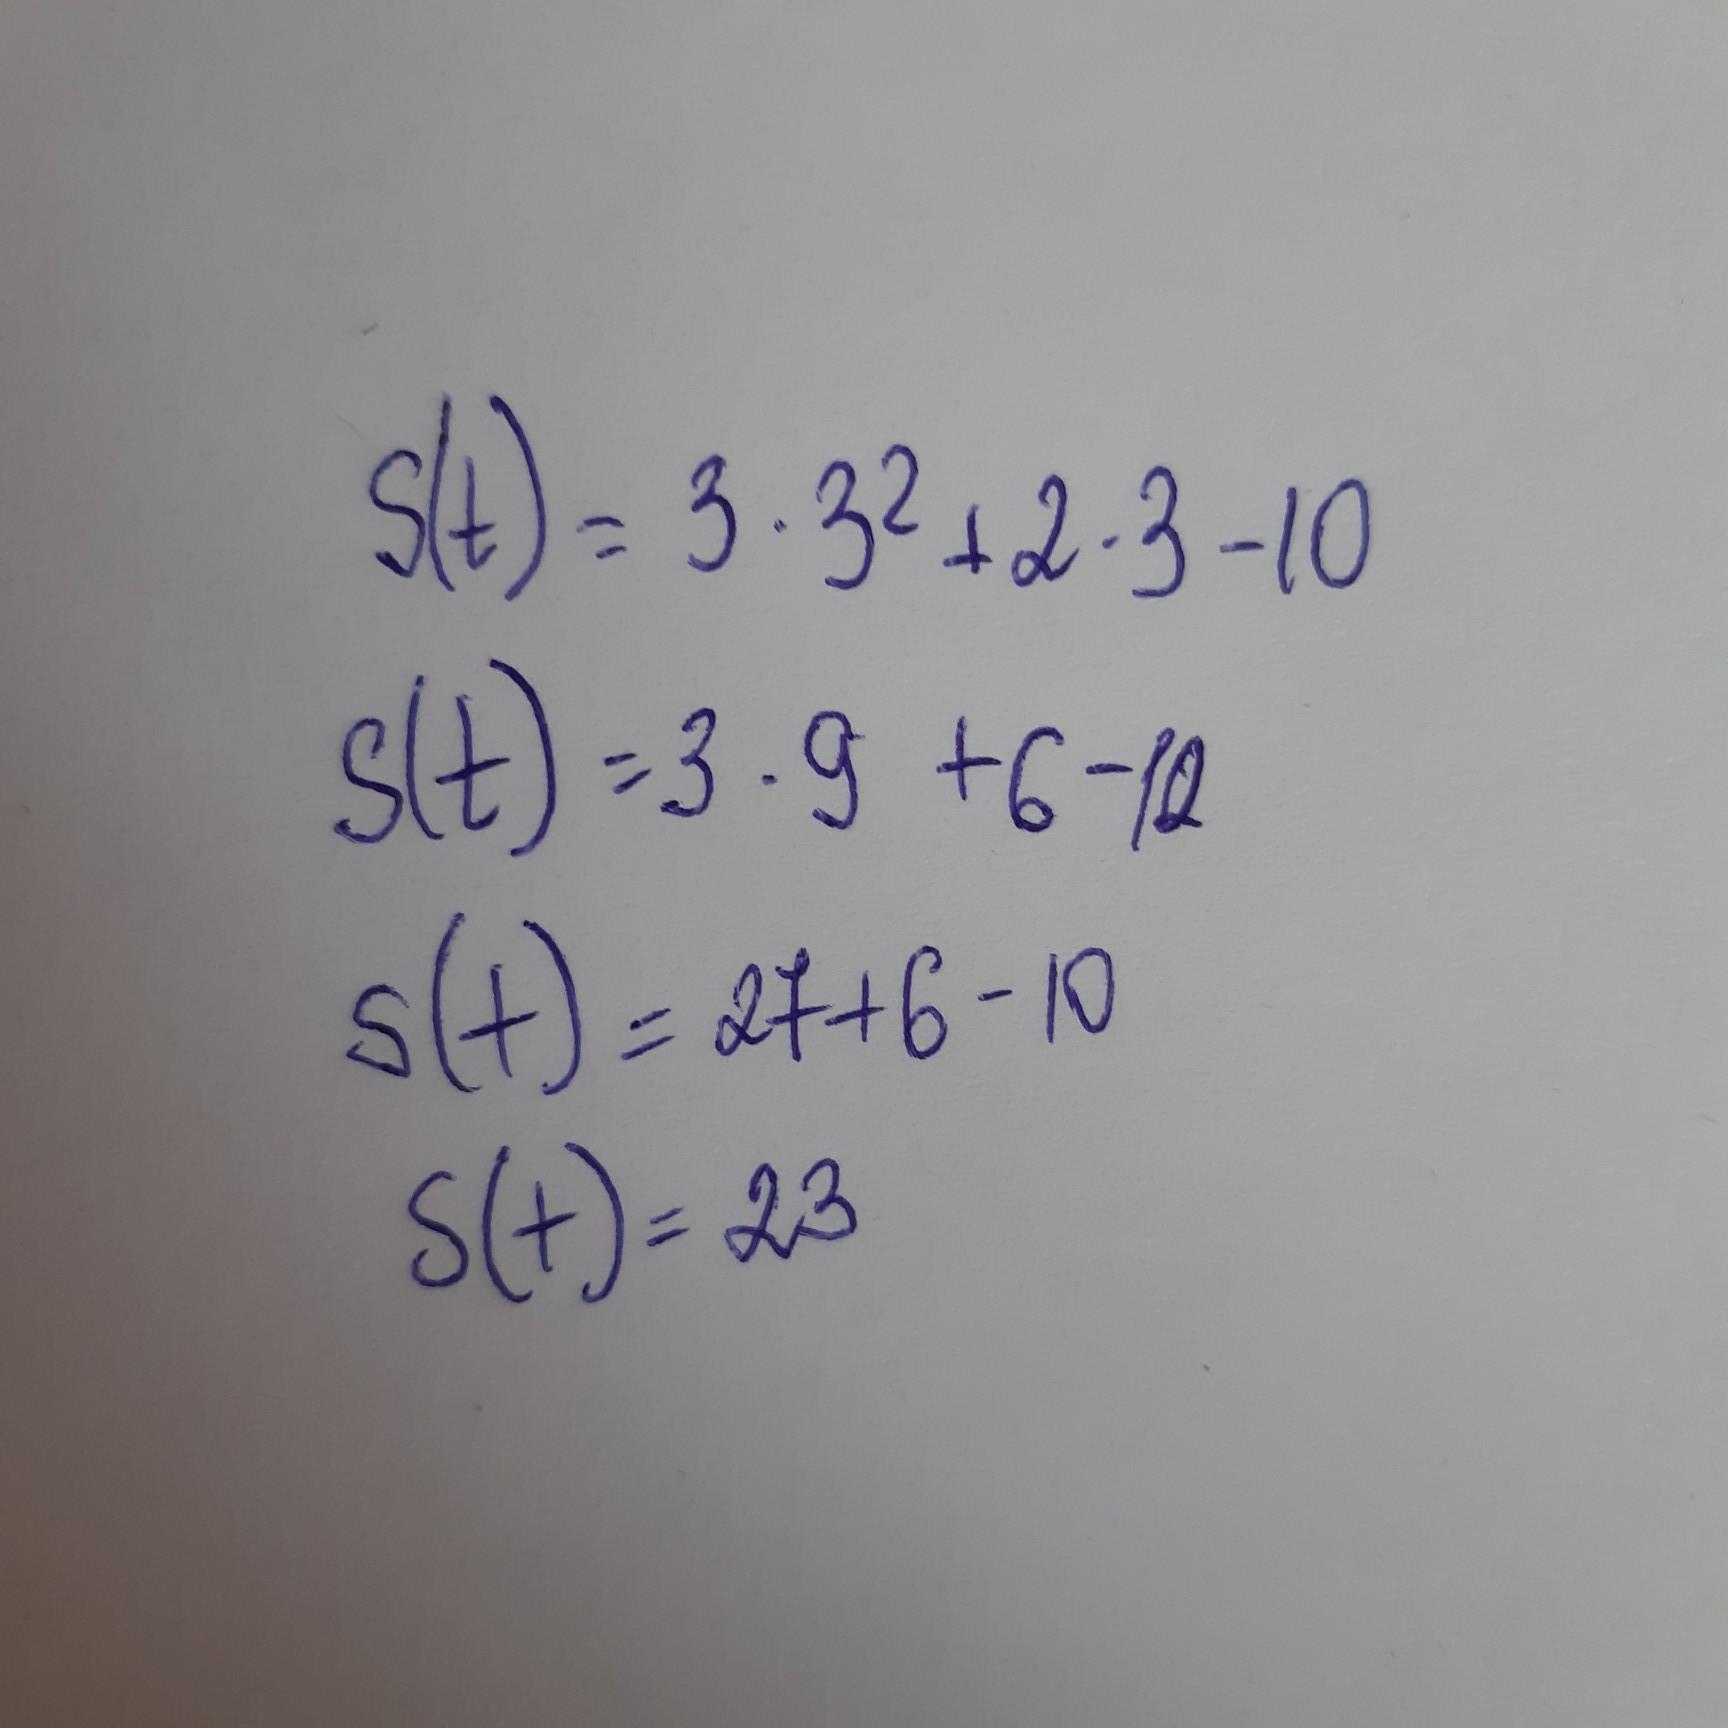 S(t) = 3 · 3² + 2 · 3 - 10
S(t) = 3 · 9 + 6 - 10
S(t) = 27 + 6 - 10
S(t) = 23